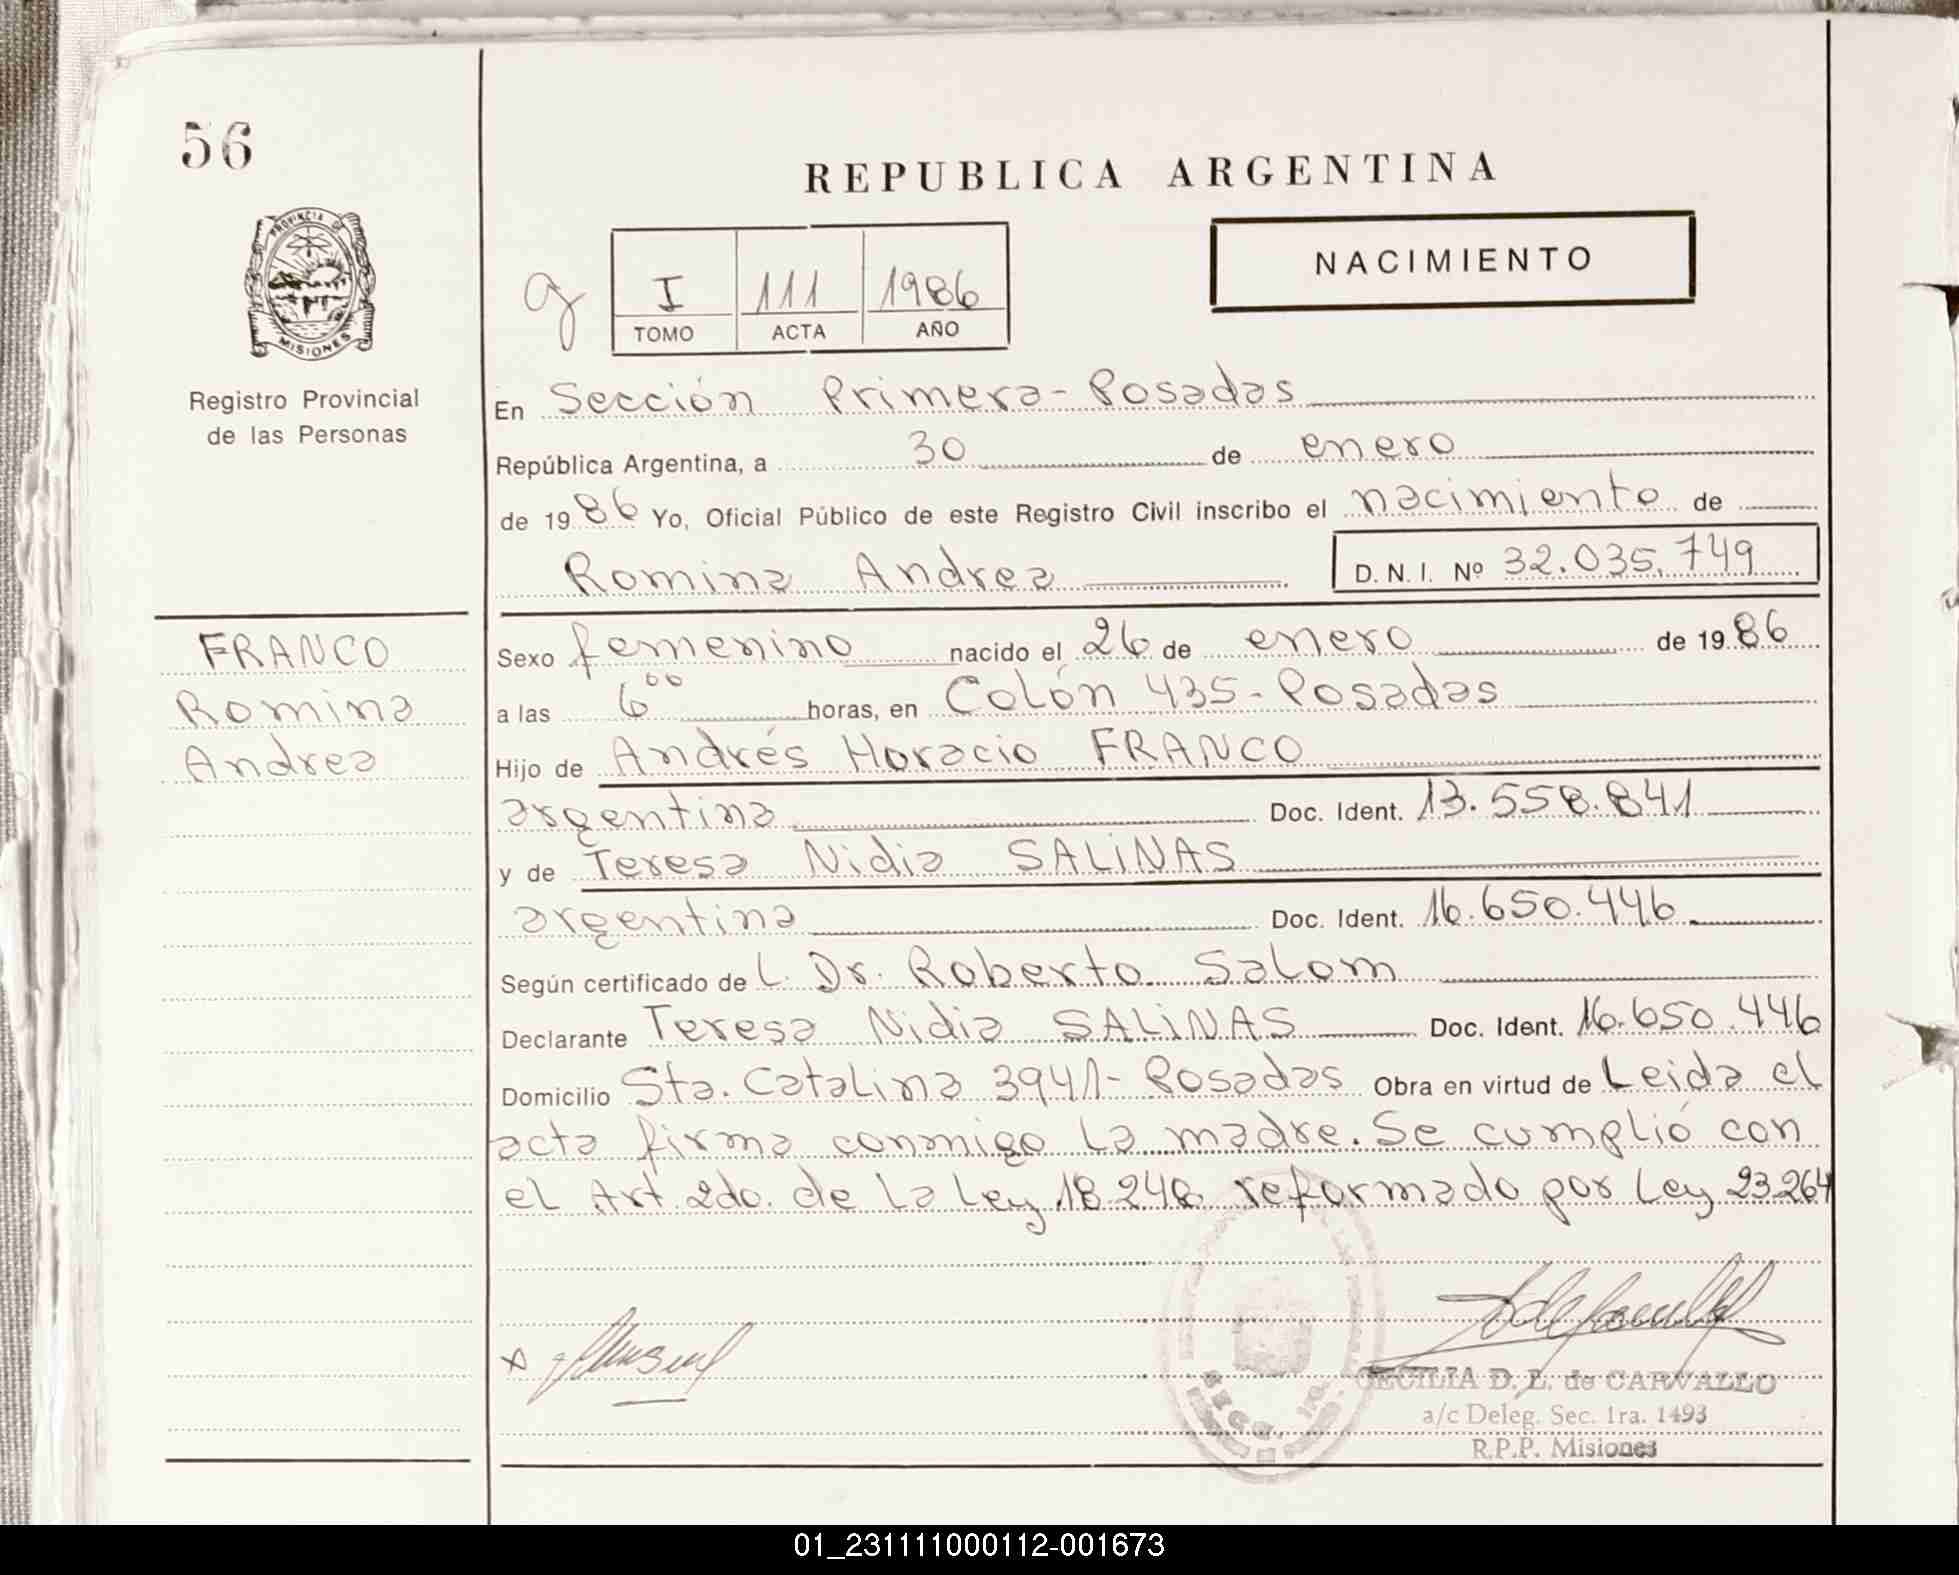 56
REPUBLICA ARGENTINA
PROVINCIA DE
MISIONES
Registro Provincial
de las Personas
I 111 1986
TOMO ACTA AÑO
NACIMIENTO
En Sección Primera - Posadas
República Argentina, a 30 de enero
de 1986 Yo, Oficial Público de este Registro Civil inscribo el nacimiento de
Romina Andrea D.N.I. Nº 32.035.749
FRANCO
Romina
Andrea
Sexo femenino nacido el 26 de enero de 1986
a las 6⁰⁰ horas, en Colón 435 - Posadas
Hijo de Andrés Horacio FRANCO
argentina Doc. Ident. 13.558.841
y de Teresa Nidia SALINAS
argentina Doc. Ident. 16.650.446
Según certificado de L. Dr. Roberto Salom
Declarante Teresa Nidia SALINAS Doc. Ident. 16.650.446
Domicilio Sta. Catalina 3941 - Posadas Obra en virtud de Leida el
acta firma conmigo la madre. Se cumplió con
el Art. 2do. de la Ley 18.248 reformado por Ley 23.264
SECC. 1ra.
CECILIA D. L. de CARVALLO
a/c Deleg. Sec. 1ra. 1493
R.P.P. Misiones
01_231111000112-001673